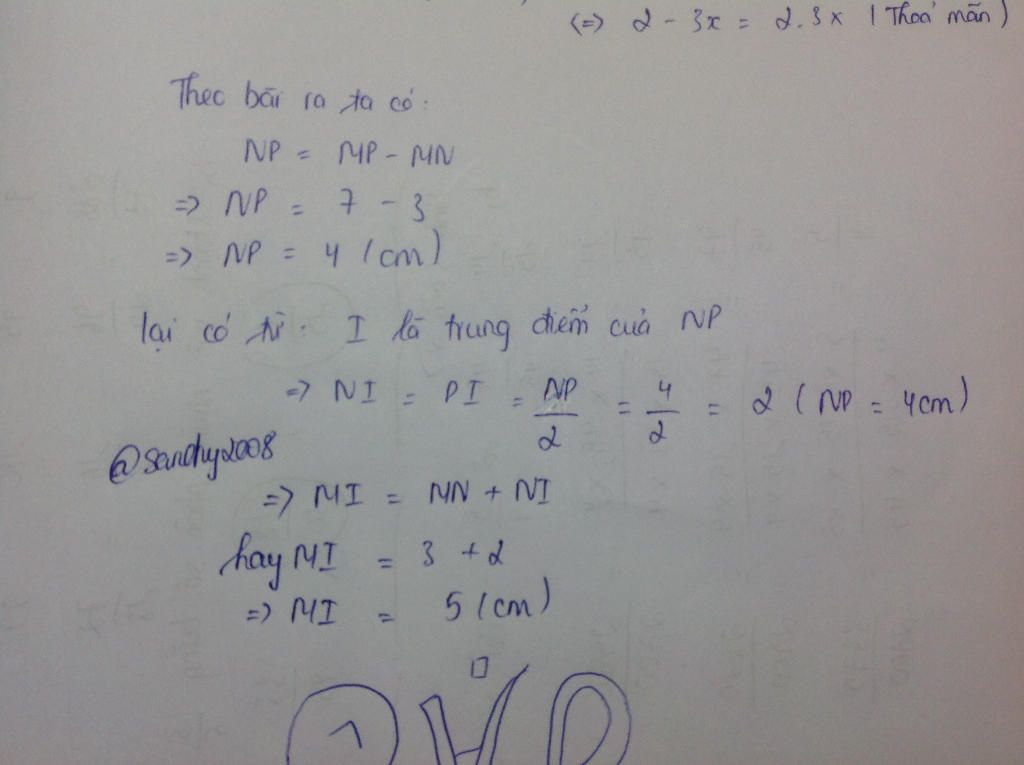 <=> 2 - 3x = 2.3x (Thoả mãn)
Theo bài ra ta có:
NP = MP - MN
=> NP = 7 - 3
=> NP = 4 (cm)
lại có I là trung điểm của NP
=> NI = PI = NP/2 = 4/2 = 2 (NP = 4cm)
@sandhy2008
=> MI = MN + NI
hay MI = 3 + 2
=> MI = 5 (cm)